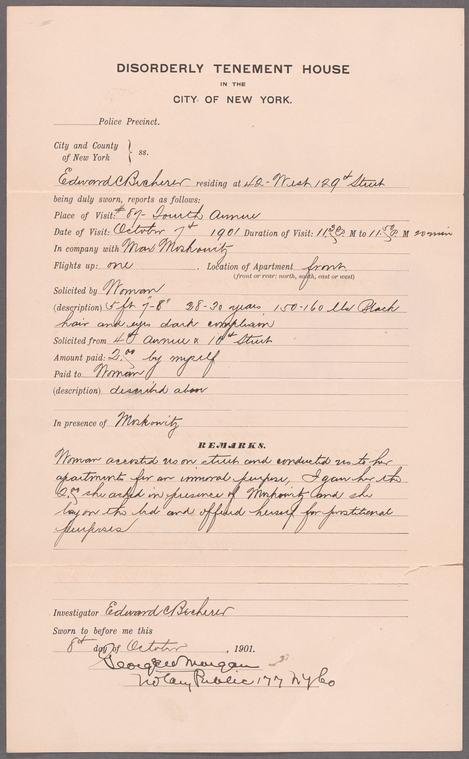 DISORDERLY TENEMENT HOUSE
IN THE
CITY OF NEW YORK.
Police Precinct.
City and County
of New York } ss.
Edward C Bucherer residing at 42- West 129th Street
being duly sworn, reports as follows:
Place of Visit: #89- Fourth Avenue
Date of Visit: October 7th 1901 Duration of Visit: 11 30 P. M to 11. 50 P. M 20 min
In company with Max Moskowitz
Flights up: one . Location of Apartment front
(front or rear: north, south, east or west)
Solicited by Woman
(description) 5 ft 7-8" 28-30 years 150-160 lbs Black
hair and eyes dark complexion
Solicited from 4th Avenue & 10th Street
Amount paid: 2.00 by myself
Paid to Woman
(description) described above
In presence of Moskowitz
REMARKS.
Woman accosted us on street and conducted us to her
apartments for an immoral purpose, I gave her the
2.00 she asked in presence of Moskowitz and she
lay on the bed and offered herself for
purposes
Investigator Edward C Bucherer
Sworn to before me this
8th day of October , 1901.
George W Morgan
Notary Public 177 NY Co